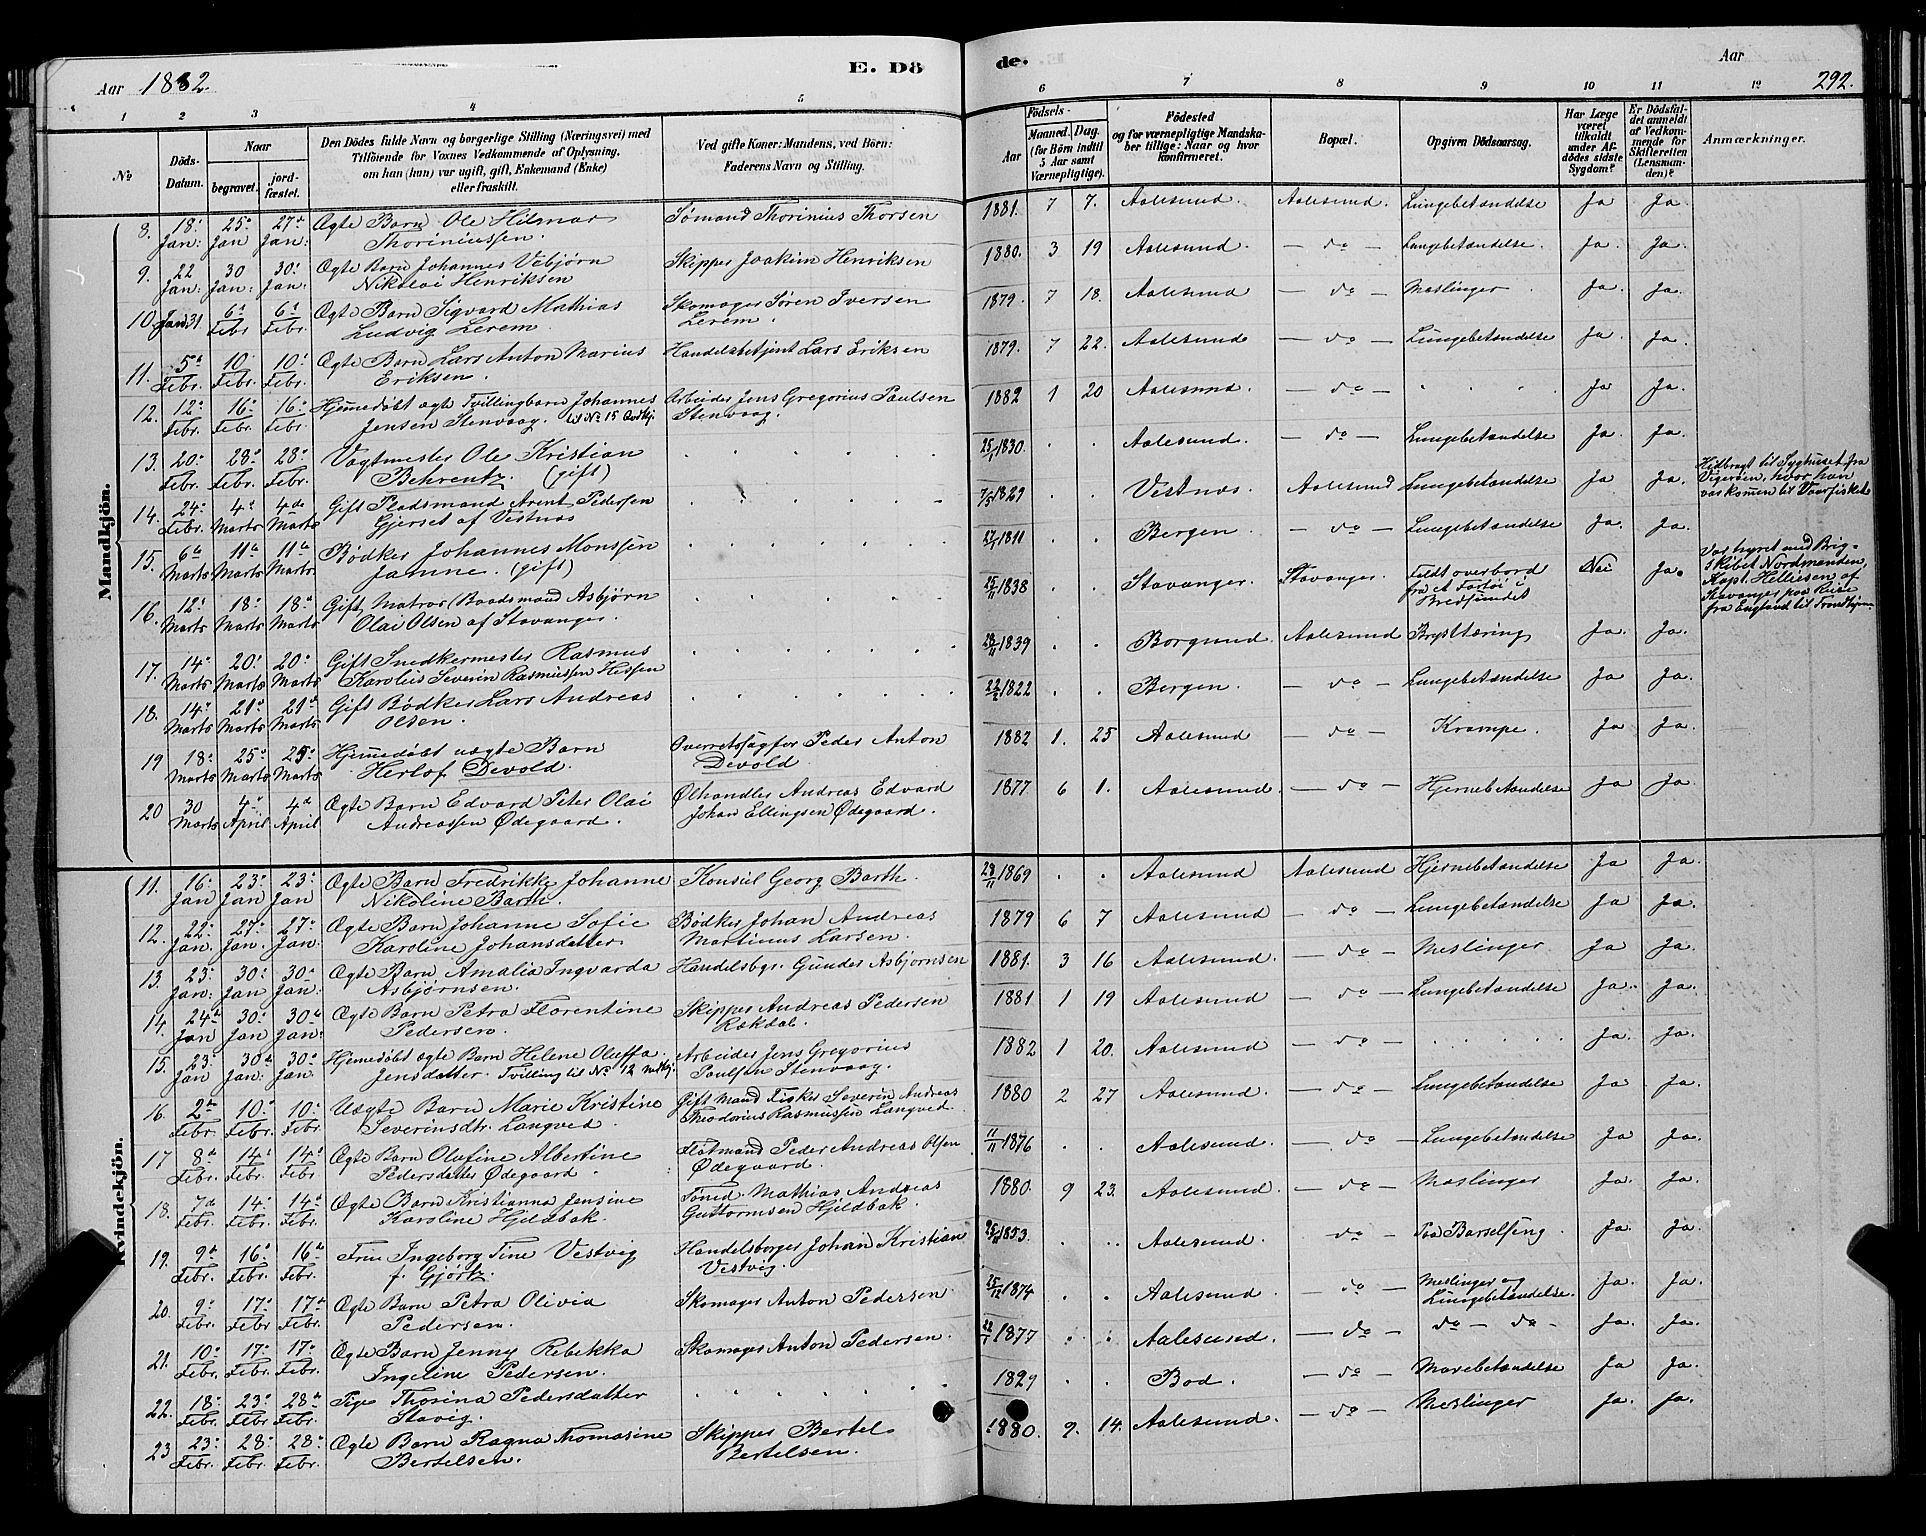 Aar 1882.
E. Dø
de.
Aar
292.
1 2 3 4 5 6 7 8 9 10 11 12
No
Døds-Datum.
Naar
begravet.
jord-fæstet.
Den Dödes fulde Navn og borgerlige Stilling (Næringsvei) med
Tilföiende for Voxnes Vedkommende af Oplysning,
om han (hun) var ugift, gift, Enkemand (Enke)
eller fraskilt.
Ved gifte Koner: Mandens, ved Börn:
Faderens Navn og Stilling.
Födsels-
Aar
Maaned. Dag.
(for Börn indtil
5 Aar samt
Værnepligtige).
Födested
og for værnepligtige Mandska-
ber tillige: Naar og hvor
konfirmeret.
Bopæl.
Opgiven Dödsaarsag.
Har Læge
været
tilkaldt
under Af-
dödes sidste
Sygdom?
Er Dödsfal-
det anmeldt
af Vedkom-
mende for
Skifteretten
(Lensman-
den)?
Anmærkninger.
Mandkjön.
8. 18. Jan: 25. Jan 27. Jan: Ægte Barn Ole Hilmar Sømand Thorinius Thorsen 1881. 7 7. Aalesund. Aalesund. Lungebetændelse Ja Ja.
Thoriniussen.
9. 22 Jan: 30 Jan: 30. Jan: Ægte Barn Johannes Vebjørn Skipper Joakim Henriksen 1880. 3 19 Aalesund. — do — Lungebetændelse. Ja. Ja.
Nikolai Henriksen
10. Jan. 31. 6. Febr 6. Febr. Ægte Barn Sigvard Mathias Skomager Søren Iversen 1879. 7 18. Aalesund — do — Meslinger. Ja. Ja.
Ludvig Lerem. Lerem.
11. 5. Febr. 10. Febr. 10. Febr. Ægte Barn Lars Anton Marius Handelsbetjent Lars Eriksen 1879. 7 22. Aalesund — do — Lungebetændelse Ja Ja.
Eriksen.
12. 12. Febr. 16. Febr. 16. Febr. Hjemedøbt ægte Tvillingbarn Johannes Arbeider Jens Gregorius Paulsen 1882 1 20 Aalesund. — do — Ja Ja.
Jensen Stenvaag. til No 15 Qvdkj. Stenvaag.
13. 20. Febr. 28. Febr. 28. Febr. Vagtmester Ole Kristian 25/1 1830. Aalesund. — do — Lungebetændelse Ja. Ja.
Behrentz. (gift)
14. 24. Febr. 4. Marts 4de Marts Gift Pladsmand Arent Pedersen 7/5 1829 Vestnæs. Aalesund Lungebetændelse Ja Ja. Hidbragt til Syghuset fra
Gjerset af Vestnæs Vigerøen, hvor han
var kommen til Vaarfisket
15. 6te Marts 11te Marts 11te Marts Bødker Johannes Monssen 27/1 1811 Bergen. — do — Lungebetændelse Ja. Ja.
Jamne. (gift)
16. 12. Marts 18. Marts 18. Marts Gift Matros (Baadsmand Asbjørn 25/11 1838 Stavanger. Stavanger. Faldt overbord Nei Ja. Var hyret med Brig-
Olai Olsen af Stavanger. fra et Fartøi i skibet Nordmanden,
Bredsundet Kapt. Helliesen af
Stavanger paa Reise
fra England til Trondhjem
17. 14. Marts 20. Marts 20. Marts Gift Snedkermester Rasmus 28/11 1839 Borgund. Aalesund Brysttæring Ja. Ja.
Karolus Severin Rasmussen Hessen
18. 14. Marts 21. Marts 21. Marts Gift Bødker Lars Andreas 22/2 1822 Bergen. — do — Lungebetændelse Ja Ja.
Olsen.
19 18. Marts 25. Marts 25. Marts Hjemedøbt uægte Barn Overretssagfør Peder Anton 1882 1. 25 Aalesund — do — Krampe. Ja Ja.
Herlof Devold. Devold.
20 30 Marts 4. April 4de April Ægte Barn Edvard Peter Olai Ølhandler Andreas Edvard 1877 6 1. Aalesund. — do — Hjernebetændelse Ja Ja.
Andreassen Ødegaard. Johan Ellingsen Ødegaard.
Kvindekjön.
11. 16. Jan 23. Jan 23. Jan Ægte Barn Fredrikke Johanne Konsul Georg Barth. 28/11 1869 Aalesund Aalesund Hjernebetændelse Ja Ja.
Nikoline Barth.
12. 22. Jan. 27. Jan. 27. Jan. Ægte Barn Johanne Sofie Bødker Johan Andreas 1879 6 7 Aalesund — do — Lungebetændelse Ja Ja.
Karoline Johansdatter Martinus Larsen.
13. 23. Jan: 30. Jan 30. Jan: Ægte Barn Amalia Ingvarda Handelsbgr. Gunder Asbjørnsen 1881. 3 16 Aalesund. — do — Meslinger Ja Ja.
Asbjørnsen.
14. 24. Jan 30. Jan 30. Jan: Ægte Barn Petra Florentine Skipper Andreas Pedersen 1881 1 19 Aalesund — do — Lungebetændelse Ja. Ja.
Pedersen. Rekdal.
15. 23. Jan 30. Jan: 30. Jan. Hjemedøbt ægte Barn Helene Oluffa. Arbeider Jens Gregorius 1882 1 20. Aalesund — do — Ja. Ja.
Jensdatter. Tvilling til No 12 Mdkj. Paulsen Stenvaag.
16. 2. Febr. 10. Febr. 10. Febr. Uægte Barn Marie Kristine Gift Mand Fisker Severin Andreas 1880 2 27 Aalesund. — do — Lungebetændelse Ja Ja.
Severinsdtr. Langved Theodorius Rasmussen Langved.
17 8. Febr. 14. Febr. 14. Febr Ægte Barn Olufine Albertine Flotmand Peder Andreas Olsen 11/11 1876 Aalesund. — do — Lungebetændelse Ja Ja.
Pedersdatter Ødegaard. Ødegaard.
18. 7de Febr. 14. Febr. 14de Febr. Ægte Barn Kristianna Jensine Mathias Andreas 1880. 9 23. Aalesund. — do — Meslinger Ja Ja.
Karoline Hjildbak. Guttormsen Hjildbak.
19. 9. Febr. 16. Febr. 16. Febr. Fru Ingeborg Tine Vestvig Handelsborger Johan Kristian 1853. Aalesund. do — Paa Barselseng. Ja. Ja.
f. Gjørtz. Vestvig.
20. 9. Febr. 17. Febr 17. Febr. Ægte Barn Petra Olivia Skomager Anton Pedersen. 25/12 1874 Aalesund. — do — Meslinger og Ja. Ja.
Pedersen. Lungebetændelse.
21. 10. Febr. 17. Febr. 17. Febr. Ægte Barn Jenny Rebekka Skomager Anton Pedersen. 22/1 1877 Aalesund. — do — — do — do — Ja. Ja.
Ingeline Pedersen.
22. 18. Febr. 23. Febr 28. Febr. Pige Thorina Pedersdatter 1829 Bod. — do — Mavebetændelse Ja Ja.
Stavig.
23 23. Febr. 28. Febr. 28. Febr. Ægte Barn Ragna Thomasine Skipper Bertel 1880. 9. 14. Aalesund. — do — Meslinger Ja. Ja.
Bertelsen. Bertelsen.